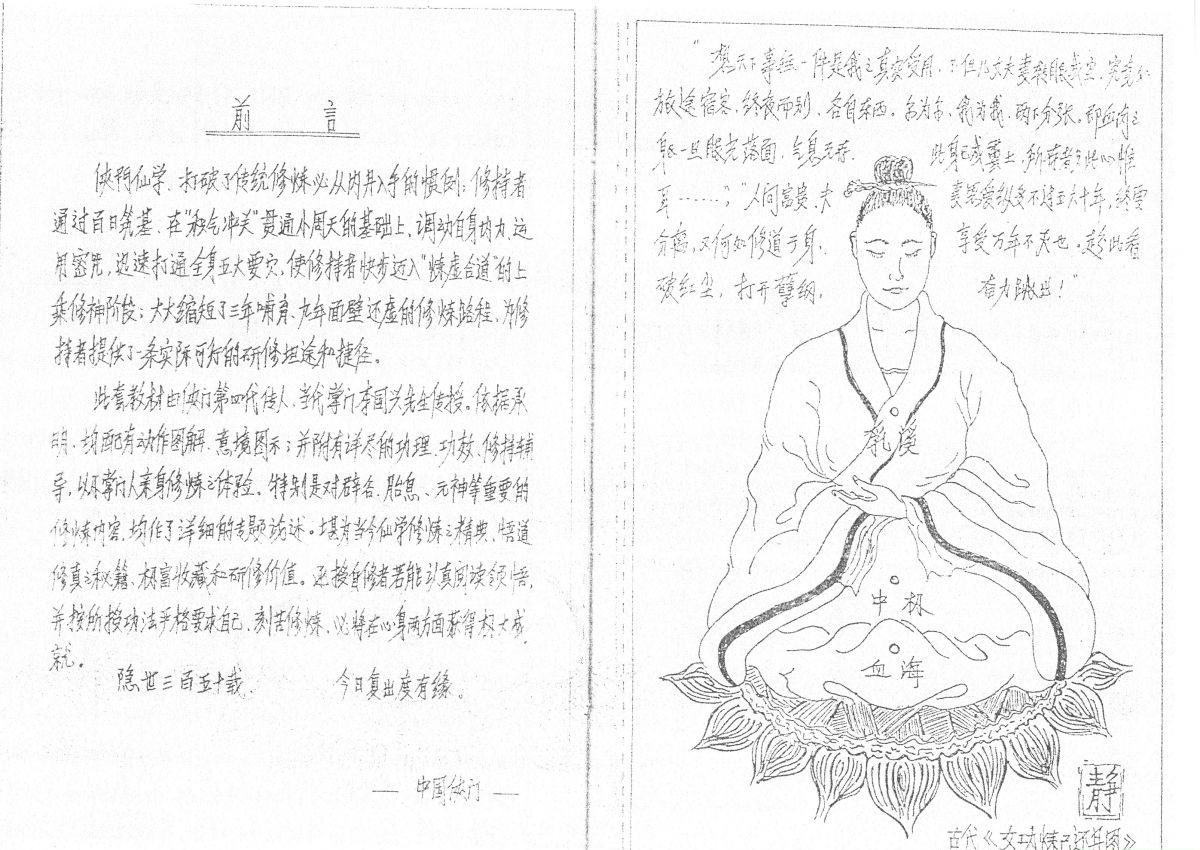 前 言
侠门仙学、打破了传统修炼必从内丹入手的惯例；修持者
通过百日筑基、在“积气冲关”贯通小周天的基础上、调动自身均力、运
用密咒，迅速打通全身五大要穴，使修持者快步迈入“炼虚合道”的上
乘修神阶段；大大缩短了三年哺育、九年面壁还虚的修炼路程、为修
持者提供了一条实际可行的研修坦途和捷径。
此套教材由侠门第四代传人、当代掌门李国兴先生传授。依据承
明、均配有动作图解、意境图示；并附有详尽的功理、功效、修持辅
导，以及掌门人亲身修炼之体验。特别是对辟谷、胎息、元神等重要的
修炼内容，均作了详细的专题论述。堪为当今仙学修炼之精典、悟道
修真之秘籍、极富收藏和研修价值。还授自修者若能认真阅读领悟，
并按所授功法严格要求自己、刻苦修炼、必将在心身两方面获得极大成
就。
隐世三百五十载 今日复出度有缘。
— 中国侠门 —
“想天下事纭一件是我之真实受用，不但儿女夫妻转眼成空，究竟如
旅途宿客，终夜而别，各自东西。名为名、我为我、两下分张。即血肉之
身，一旦眼光落面，气息无存， 此身已成
耳……；“人间富贵、夫 妻恩爱纵多不过五六十年，终要
分离，又何如修道于身， 享受万年不灭也。趁此看
破红尘，打开孽网， 奋力跳出！”
乳溪
中极
血海
静
古代《女功炼己还丹图》